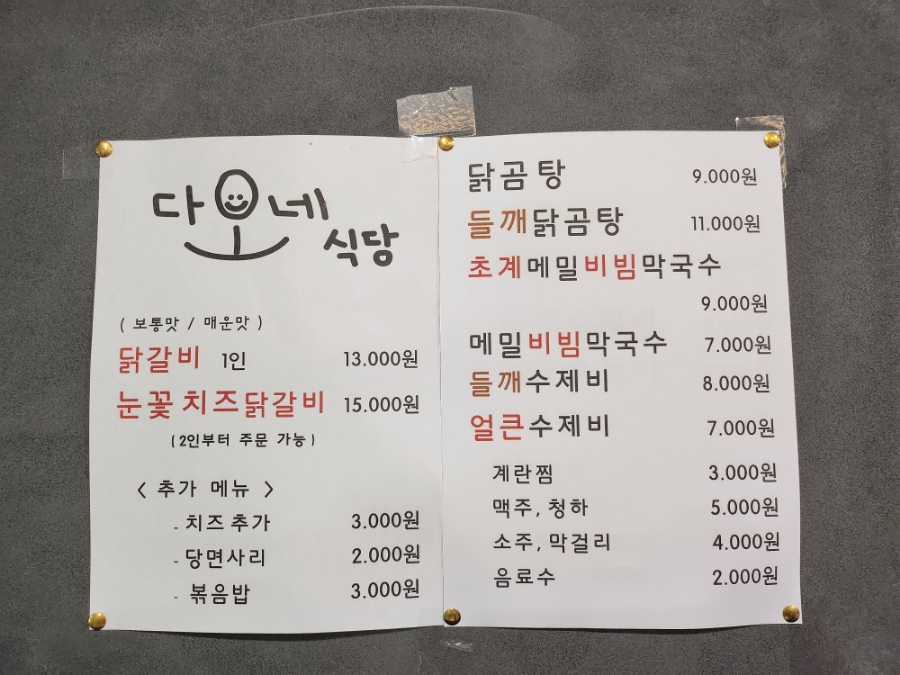 다오네
식당
( 보통맛 / 매운맛 )
닭갈비 1인 13.000원
눈꽃 치즈닭갈비 15.000원
( 2인부터 주문 가능 )
< 추가 메뉴 >
- 치즈 추가 3.000원
- 당면사리 2.000원
- 볶음밥 3.000원
닭곰탕 9.000원
들깨닭곰탕 11.000원
초계메밀비빔막국수
9.000원
메밀비빔막국수 7.000원
들깨수제비 8.000원
얼큰수제비 7.000원
계란찜 3.000원
맥주, 청하 5.000원
소주, 막걸리 4.000원
음료수 2.000원